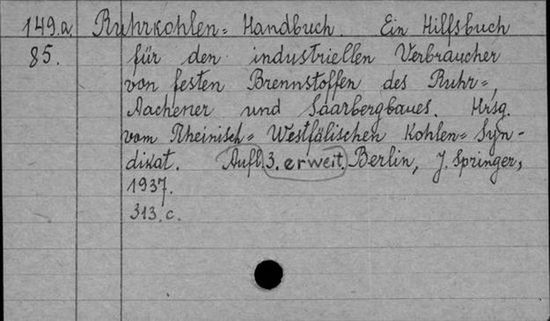 149.a Ruhrkohlen= Handbuch. Ein Hilfsbuch
85. für den industriellen Verbraucher
von festen Brennstoffen des Ruhr=,
Aachener und Saarbergbaues. Hrsg.
vom Rheinisch= Westfälischen Kohlen= Syn-
dikat. Aufl. 3. erweit. Berlin, J. Springer,
1937.
313. c.